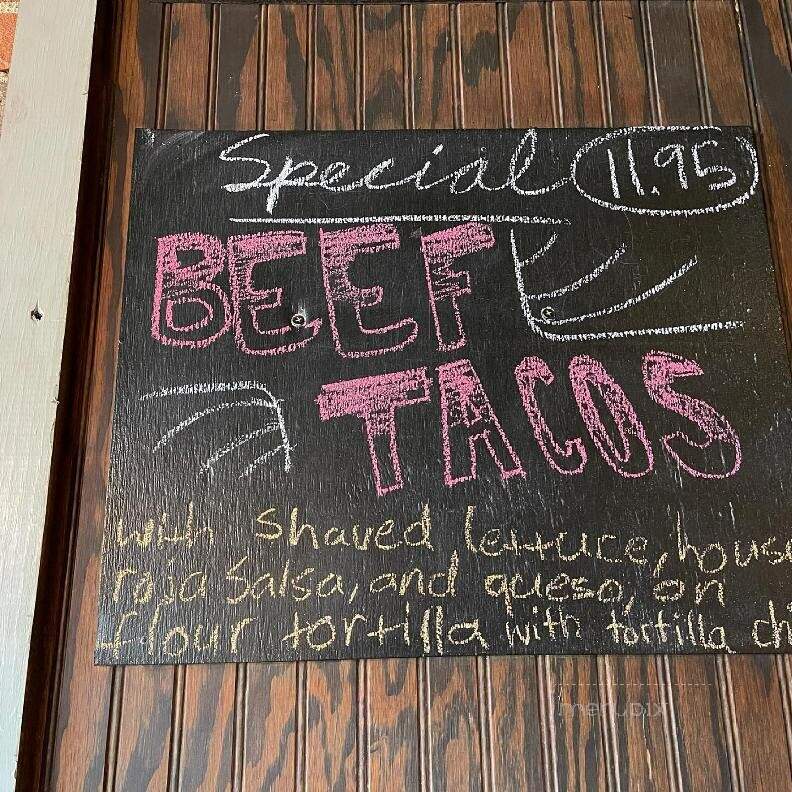 Special 11.95
BEEF
TACOS
with shaved lettuce, house
roja salsa, and queso, on
flour tortilla with tortilla chi
menupix